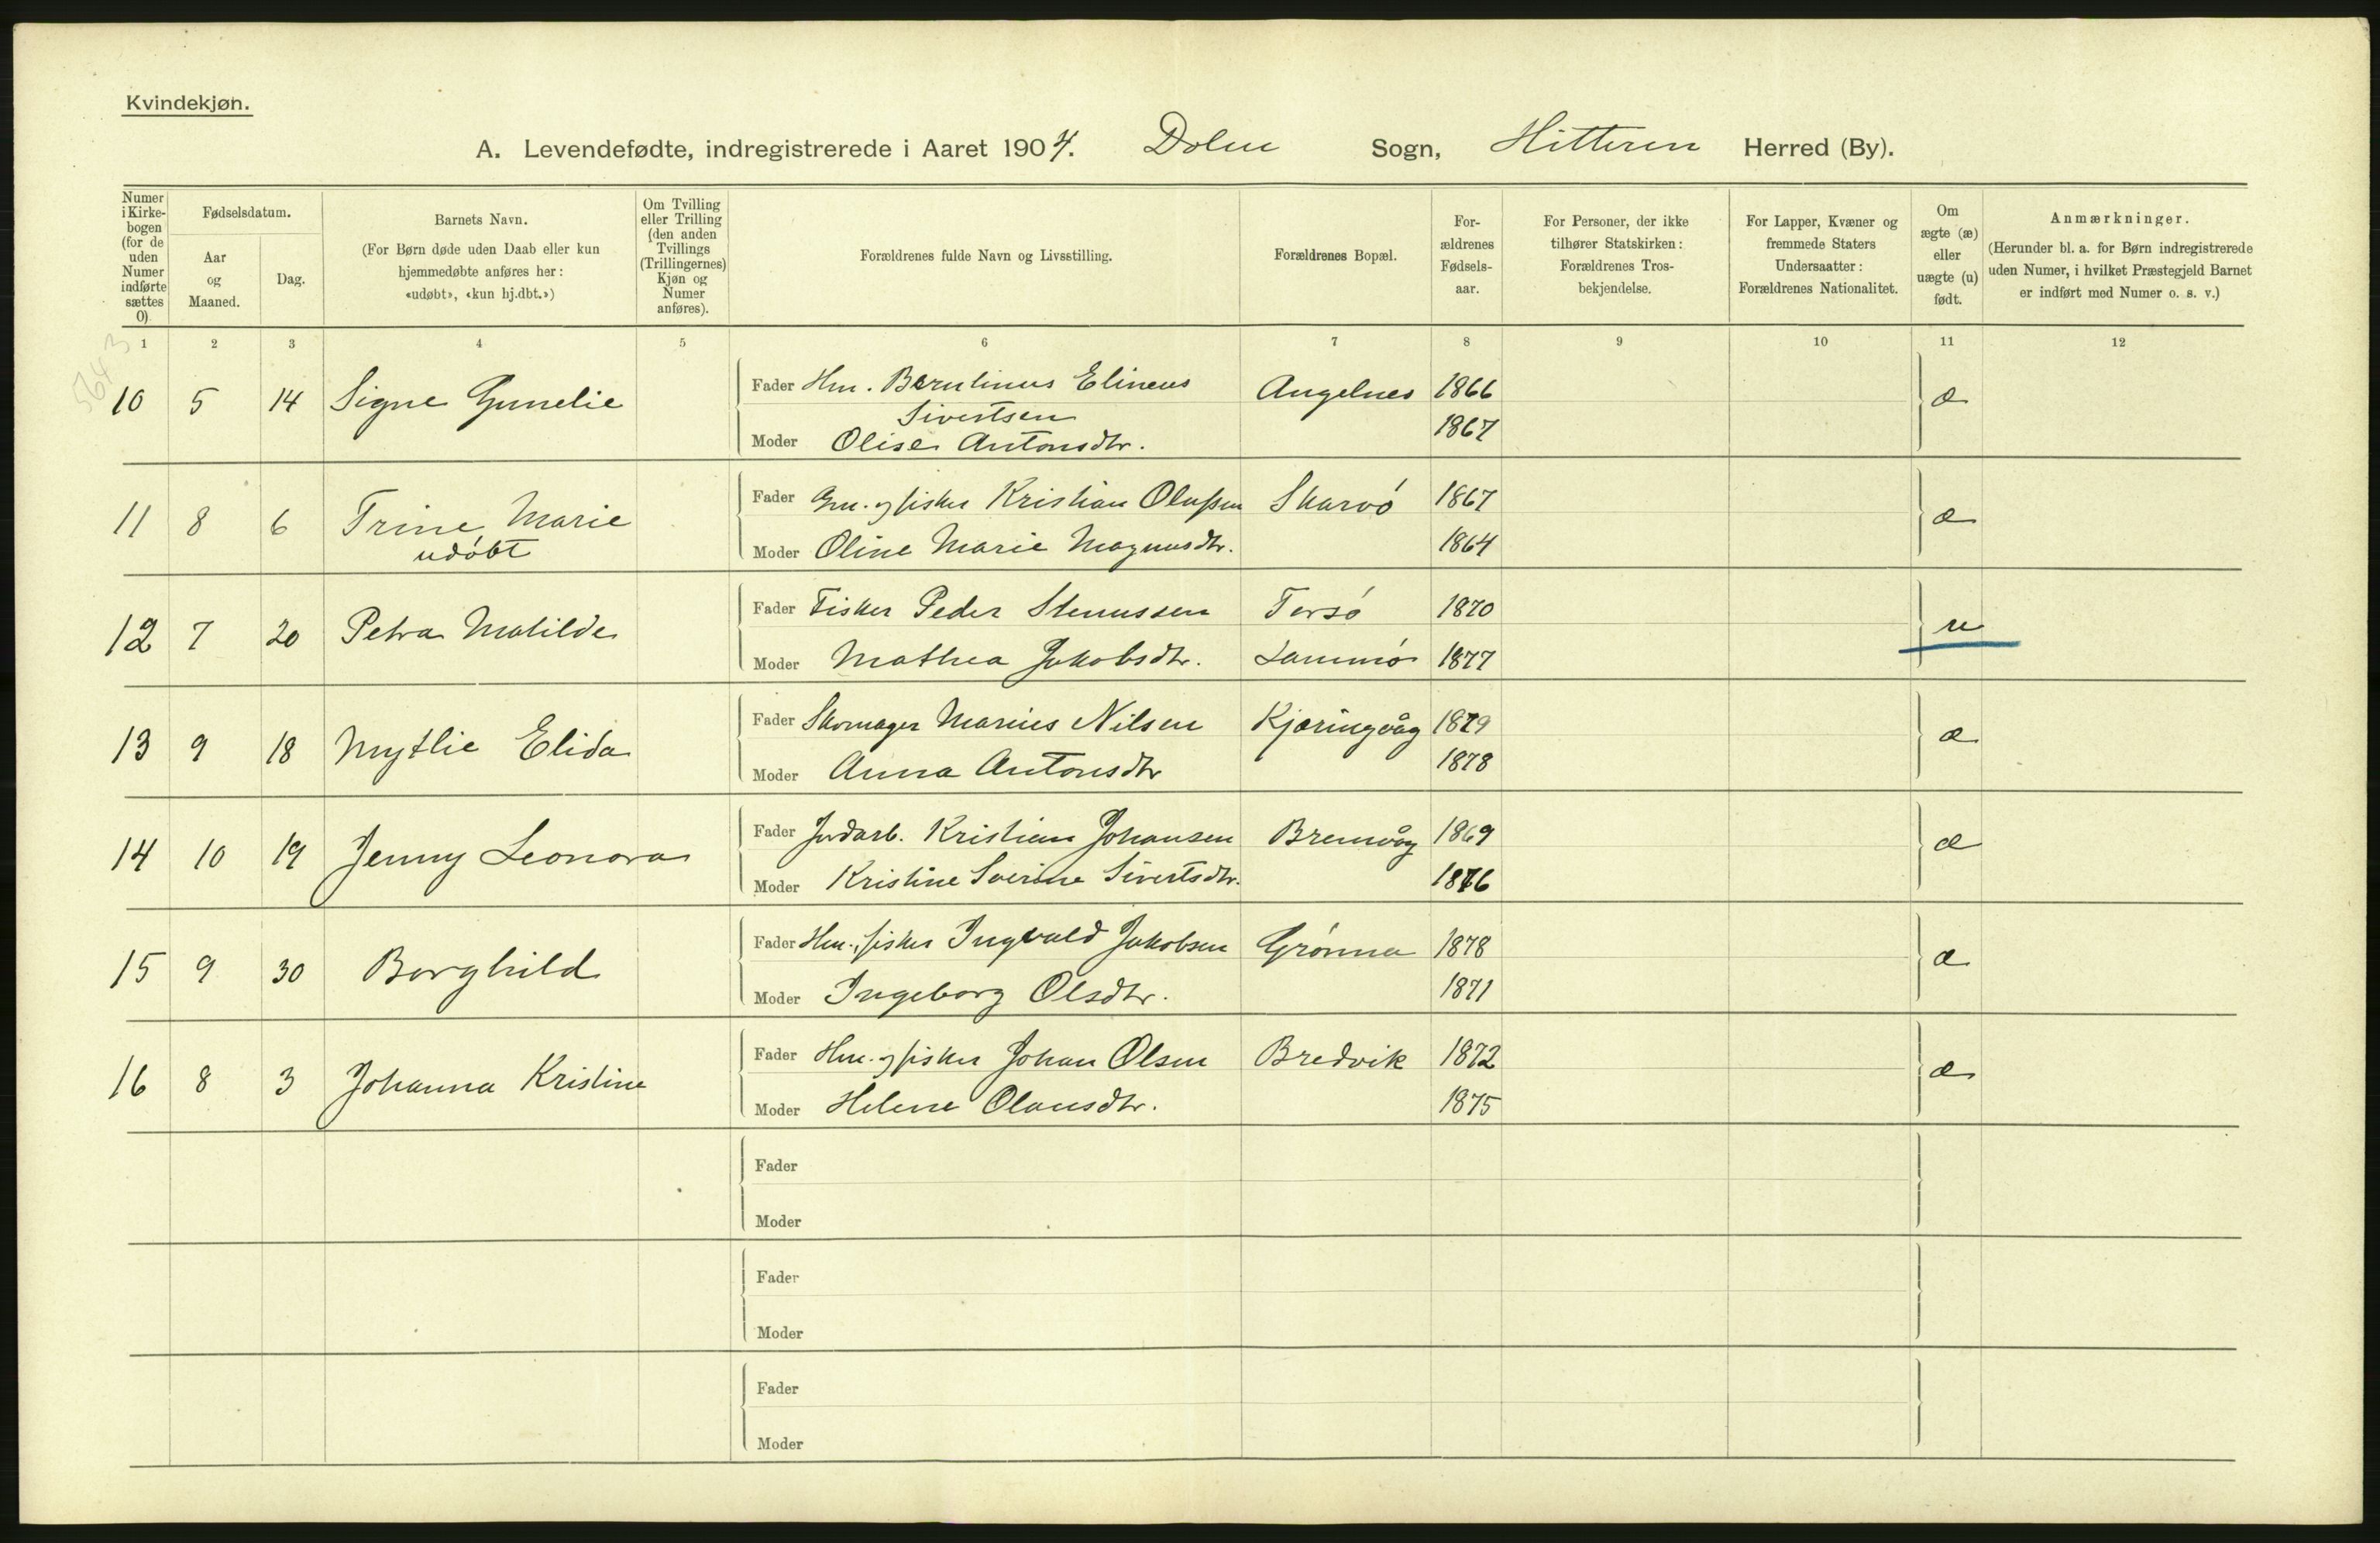 Kvindekjøn.
A. Levendefødte, indregistrerede i Aaret 1904. Dolm Sogn, Hitteren Herred (By).
Numer i Kirkebogen (for de uden Numer indførte sættes 0).
Fødselsdatum.
Aar og Maaned.
Dag.
Barnets Navn.
(For Børn døde uden Daab eller kun hjemmedøbte anføres her: «udøbt», «kun hj.dbt.»)
Om Tvilling eller Trilling (den anden Tvillings (Trillingernes) Kjøn og Numer anføres).
Forældrenes fulde Navn og Livsstilling.
Forældrenes Bopæl.
Forældrenes Fødselsaar.
For Personer, der ikke tilhører Statskirken: Forældrenes Trosbekjendelse.
For Lapper, Kvæner og fremmede Staters Undersaatter: Forældrenes Nationalitet.
Om ægte (æ) eller uægte (u) født.
Anmærkninger.
(Herunder bl. a. for Børn indregistrerede uden Numer, i hvilket Præstegjeld Barnet er indført med Numer o. s. v.)
1 2 3 4 5 6 7 8 9 10 11 12
5643
10 5 14 Signe Gunelie Fader Hm. Berntinus Elineus Angelnes 1866 æ
Sivertsen
Moder Olise Antonsdtr. 1867
11 8 6 Trine Marie Fader Gm. og fisker Kristian Olufsen Skarvø 1867 æ
udøbt
Moder Oline Marie Magnusdtr. 1864
12 7 20 Petra Matilde Fader Fisker Peder Stenussen Tersø 1870 u
Moder Mathea Jakobsdtr. Lammø 1877
13 9 18 Mytlie Elida Fader Skomager Marius Nilsen Kjæringvåg 1879 æ
Moder Anna Antonsdtr 1878
14 10 19 Jenny Leonora Fader Jordarb. Kristian Johansen Bremvåg 1869 æ
Moder Kristine Sverine Sivertsdtr. 1876
15 9 30 Borghild Fader Hm., fisker Ingvald Jakobsen Grønna 1878 æ
Moder Ingeborg Olsdtr. 1871
16 8 3 Johanna Kristine Fader Hm. og fisker Johan Olsen Bredvik 1872 æ
Moder Helene Olausdtr. 1875
Fader
Moder
Fader
Moder
Fader
Moder